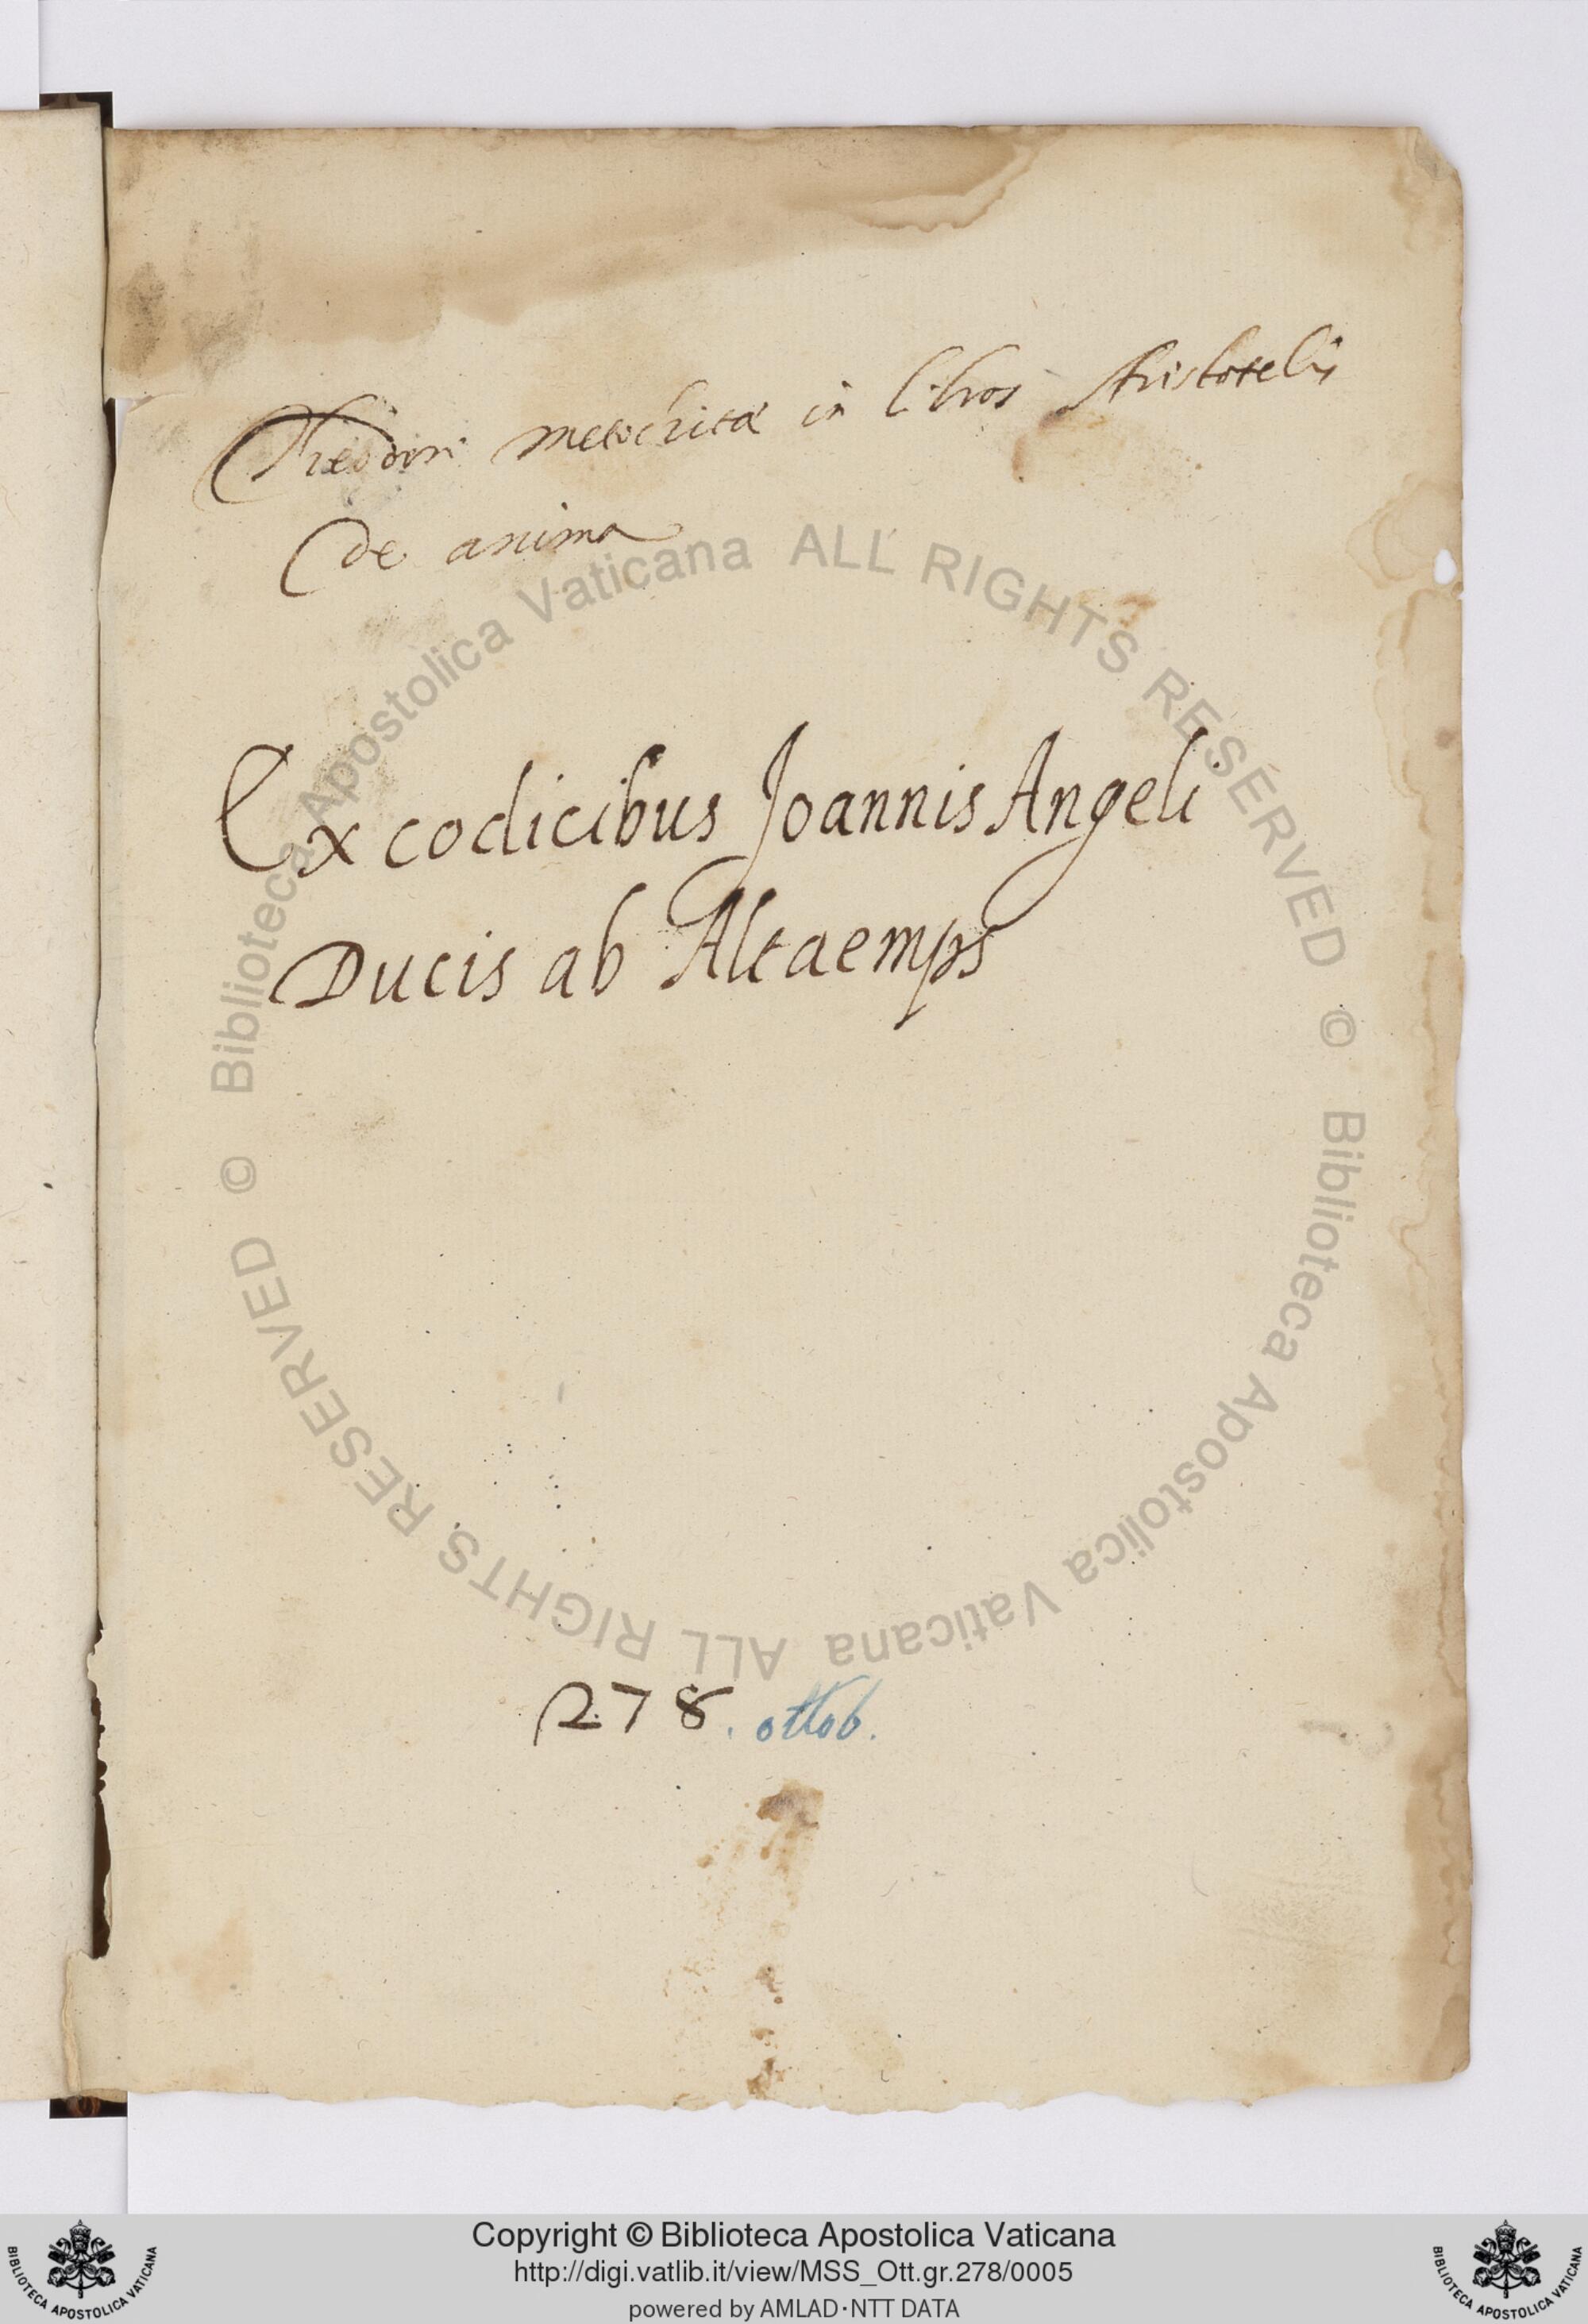 Theodori metochitæ in libros Aristotelis
de anima
Ex codicibus Joannis Angeli
Ducis ab Altaemps
278. ottob.
© Biblioteca Apostolica Vaticana ALL RIGHTS RESERVED
© Biblioteca Apostolica Vaticana ALL RIGHTS RESERVED
Copyright © Biblioteca Apostolica Vaticana
http://digi.vatlib.it/view/MSS_Ott.gr.278/0005
powered by AMLAD·NTT DATA
BIBLIOTECA APOSTOLICA VATICANA
BIBLIOTECA APOSTOLICA VATICANA